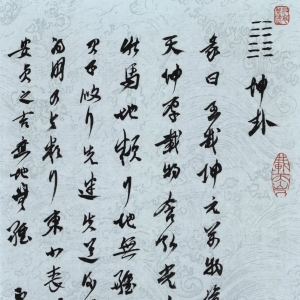 坤卦
彖曰至哉坤元萬物資
天坤厚載物含弘光大
牝馬地類行地無疆
君子攸行先迷失道後
得朋乃與類行東北喪
安貞之吉應地無疆